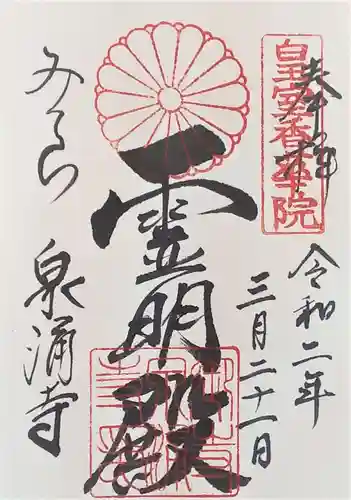 皇室香華院
奉拝
令和二年
三月二十一日
霊明殿
みてら
泉涌寺